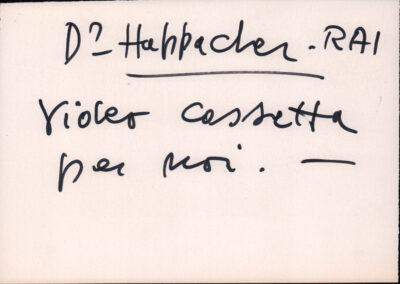 Dr Happacher - RAI
Video cassetta
per noi. —